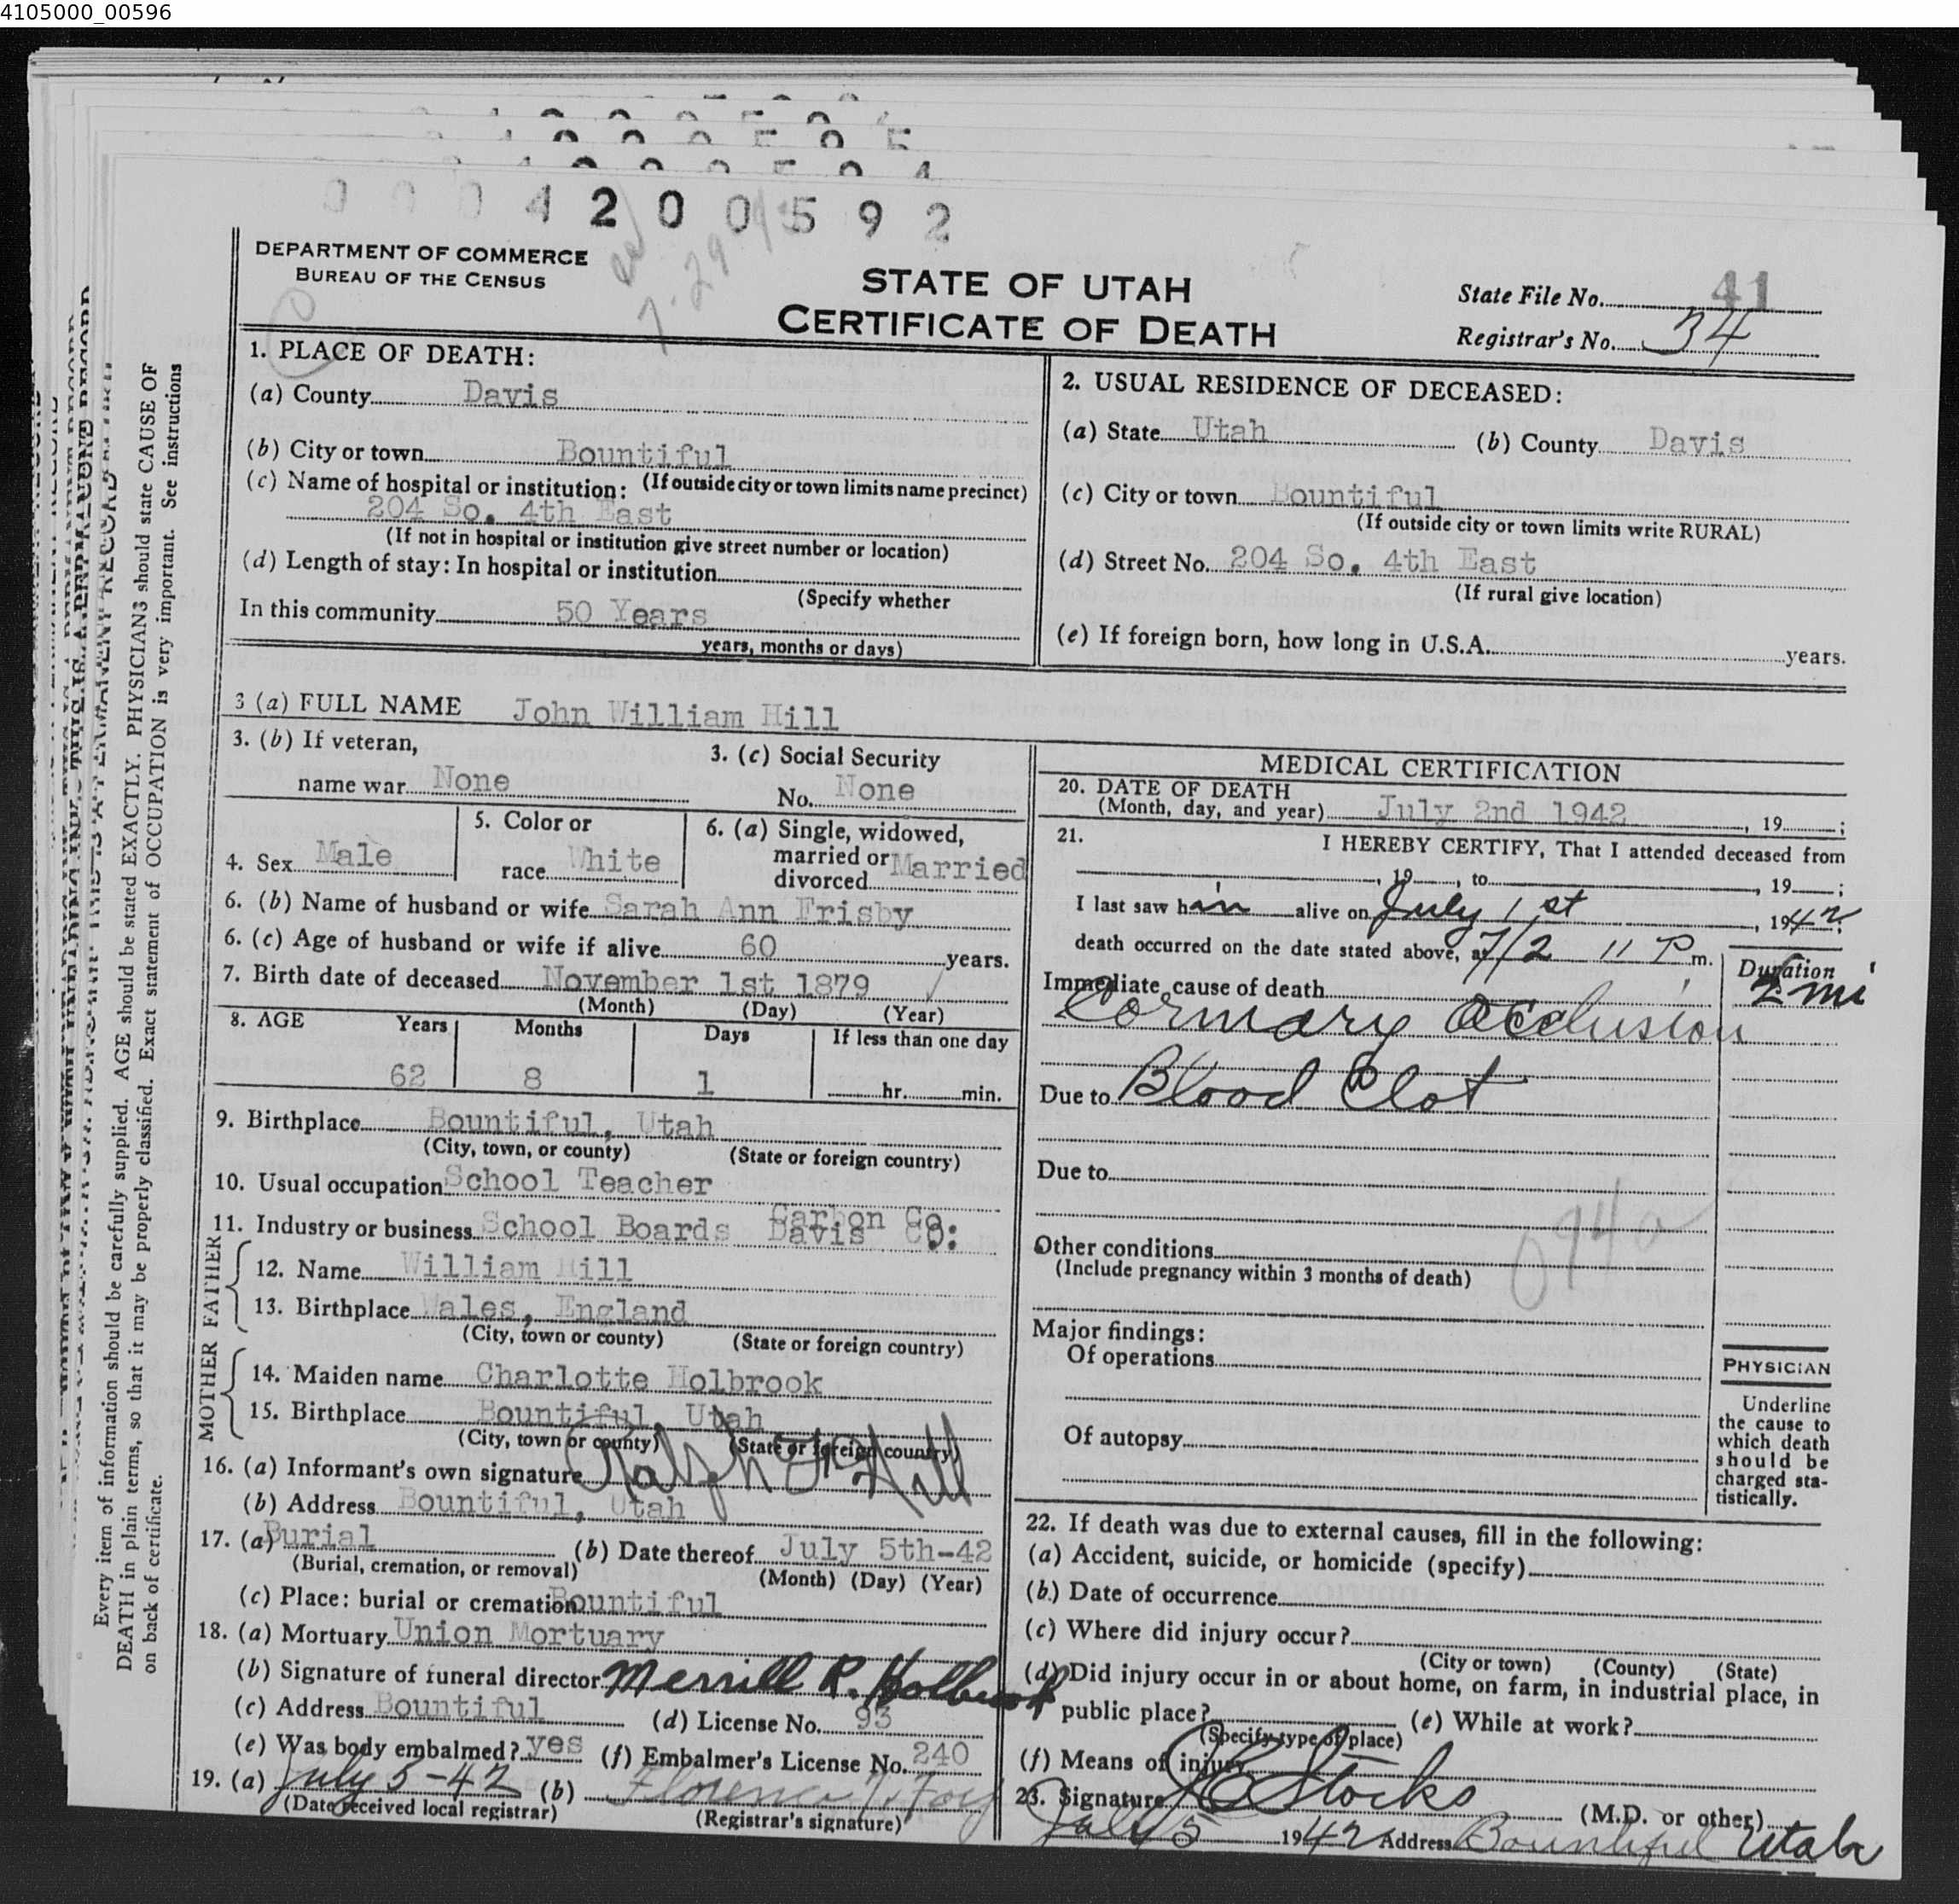 4105000_00596
0004200592
DEPARTMENT OF COMMERCE
BUREAU OF THE CENSUS
7-29
STATE OF UTAH
CERTIFICATE OF DEATH
State File No. 41
Registrar's No. 34
1. PLACE OF DEATH:
(a) County Davis
(b) City or town Bountiful
(c) Name of hospital or institution: (If outside city or town limits name precinct)
204 So. 4th East
(If not in hospital or institution give street number or location)
(d) Length of stay: In hospital or institution
(Specify whether
In this community 50 Years
years, months or days)
2. USUAL RESIDENCE OF DECEASED:
(a) State Utah (b) County Davis
(c) City or town Bountiful
(If outside city or town limits write RURAL)
(d) Street No. 204 So. 4th East
(If rural give location)
(e) If foreign born, how long in U.S.A. years.
3 (a) FULL NAME John William Hill
3. (b) If veteran, name war None
3. (c) Social Security No. None
4. Sex Male
5. Color or race White
6. (a) Single, widowed, married or divorced Married
6. (b) Name of husband or wife Sarah Ann Frisby
6. (c) Age of husband or wife if alive 60 years.
7. Birth date of deceased November 1st 1879
(Month) (Day) (Year)
8. AGE Years Months Days If less than one day
62 8 1 hr. min.
9. Birthplace Bountiful, Utah
(City, town, or county) (State or foreign country)
10. Usual occupation School Teacher
Carbon Co.
11. Industry or business School Boards Davis Co.
FATHER
12. Name William Hill
13. Birthplace Wales, England
(City, town or county) (State or foreign country)
MOTHER
14. Maiden name Charlotte Holbrook
15. Birthplace Bountiful, Utah
(City, town or county) (State or foreign country)
16. (a) Informant's own signature Ralph F Hill
(b) Address Bountiful, Utah
17. (a) Burial (b) Date thereof July 5th-42
(Burial, cremation, or removal) (Month) (Day) (Year)
(c) Place: burial or cremation Bountiful
18. (a) Mortuary Union Mortuary
(b) Signature of funeral director Merrill R. Holbrook
(c) Address Bountiful (d) License No. 93
(e) Was body embalmed? yes (f) Embalmer's License No. 240
19. (a) July 5-42 (b) Florence
(Date received local registrar) (Registrar's signature)
MEDICAL CERTIFICATION
20. DATE OF DEATH
(Month, day, and year) July 2nd 1942, 19 ;
21. I HEREBY CERTIFY, That I attended deceased from
, 19 , to , 19 ;
I last saw him alive on July 1st, 1942;
death occurred on the date stated above, at 7/2 11 P m.
Duration
Immediate cause of death 2 mi
Cornary Occlusion
Due to Blood Clot
Due to
094a
Other conditions
(Include pregnancy within 3 months of death)
Major findings:
Of operations
Of autopsy
PHYSICIAN
Underline
the cause to
which death
should be
charged sta-
tistically.
22. If death was due to external causes, fill in the following:
(a) Accident, suicide, or homicide (specify)
(b) Date of occurrence
(c) Where did injury occur?
(City or town) (County) (State)
(d) Did injury occur in or about home, on farm, in industrial place, in
public place? (e) While at work?
(Specify type of place)
(f) Means of injury
23. Signature J C Stocks (M.D. or other)
July 5 1942 Address Bountiful Utah
Every item of information should be carefully supplied. AGE should be stated EXACTLY. PHYSICIANS should state CAUSE OF
DEATH in plain terms, so that it may be properly classified. Exact statement of OCCUPATION is very important. See instructions
on back of certificate.